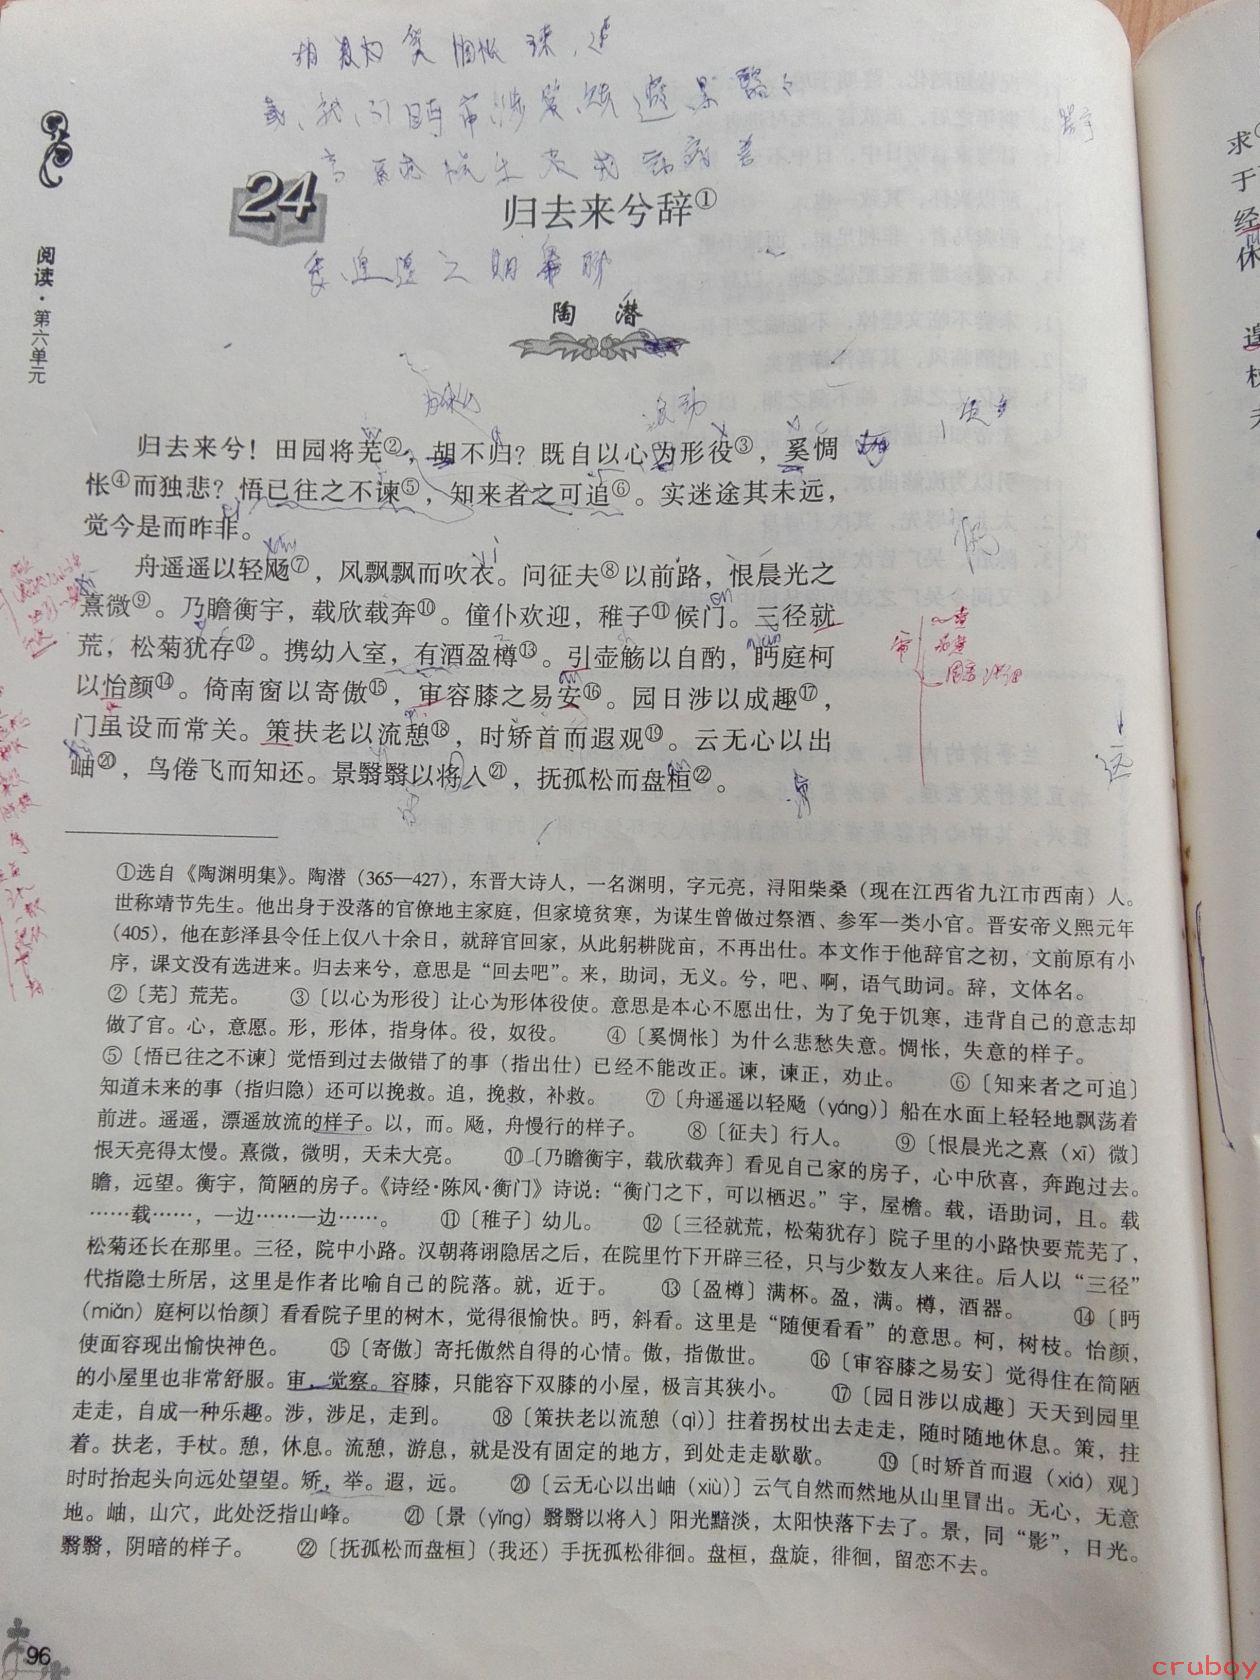 24
归去来兮辞①
陶 潜
阅读·第六单元
归去来兮！田园将芜②，胡不归？既自以心为形役③，奚惆
怅④而独悲？悟已往之不谏⑤，知来者之可追⑥。实迷途其未远，
觉今是而昨非。
舟遥遥以轻飏⑦，风飘飘而吹衣。问征夫⑧以前路，恨晨光之
熹微⑨。乃瞻衡宇，载欣载奔⑩。僮仆欢迎，稚子⑪候门。三径就
荒，松菊犹存⑫。携幼入室，有酒盈樽⑬。引壶觞以自酌，眄庭柯
以怡颜⑭。倚南窗以寄傲⑮，审容膝之易安⑯。园日涉以成趣⑰，
门虽设而常关。策扶老以流憩⑱，时矫首而遐观⑲。云无心以出
岫⑳，鸟倦飞而知还。景翳翳以将入㉑，抚孤松而盘桓㉒。
①选自《陶渊明集》。陶潜（365—427），东晋大诗人，一名渊明，字元亮，浔阳柴桑（现在江西省九江市西南）人。
世称靖节先生。他出身于没落的官僚地主家庭，但家境贫寒，为谋生曾做过祭酒、参军一类小官。晋安帝义熙元年
（405），他在彭泽县令任上仅八十余日，就辞官回家，从此躬耕陇亩，不再出仕。本文作于他辞官之初，文前原有小
序，课文没有选进来。归去来兮，意思是“回去吧”。来，助词，无义。兮，吧、啊，语气助词。辞，文体名。
②〔芜〕荒芜。 ③〔以心为形役〕让心为形体役使。意思是本心不愿出仕，为了免于饥寒，违背自己的意志却
做了官。心，意愿。形，形体，指身体。役，奴役。 ④〔奚惆怅〕为什么悲愁失意。惆怅，失意的样子。
⑤〔悟已往之不谏〕觉悟到过去做错了的事（指出仕）已经不能改正。谏，谏正，劝止。 ⑥〔知来者之可追〕
知道未来的事（指归隐）还可以挽救。追，挽救，补救。 ⑦〔舟遥遥以轻飏（yáng）〕船在水面上轻轻地飘荡着
前进。遥遥，漂遥放流的样子。以，而。飏，舟慢行的样子。 ⑧〔征夫〕行人。 ⑨〔恨晨光之熹（xī）微〕
恨天亮得太慢。熹微，微明，天未大亮。 ⑩〔乃瞻衡宇，载欣载奔〕看见自己家的房子，心中欣喜，奔跑过去。
瞻，远望。衡宇，简陋的房子。《诗经·陈风·衡门》诗说：“衡门之下，可以栖迟。”宇，屋檐。载，语助词，且。载
……载……，一边……一边……。 ⑪〔稚子〕幼儿。 ⑫〔三径就荒，松菊犹存〕院子里的小路快要荒芜了，
松菊还长在那里。三径，院中小路。汉朝蒋诩隐居之后，在院里竹下开辟三径，只与少数友人来往。后人以“三径”
代指隐士所居，这里是作者比喻自己的院落。就，近于。 ⑬〔盈樽〕满杯。盈，满。樽，酒器。 ⑭〔眄
（miǎn）庭柯以怡颜〕看看院子里的树木，觉得很愉快。眄，斜看。这里是“随便看看”的意思。柯，树枝。怡颜，
使面容现出愉快神色。 ⑮〔寄傲〕寄托傲然自得的心情。傲，指傲世。 ⑯〔审容膝之易安〕觉得住在简陋
的小屋里也非常舒服。审，觉察。容膝，只能容下双膝的小屋，极言其狭小。 ⑰〔园日涉以成趣〕天天到园里
走走，自成一种乐趣。涉，涉足，走到。 ⑱〔策扶老以流憩（qì）〕拄着拐杖出去走走，随时随地休息。策，拄
着。扶老，手杖。憩，休息。流憩，游息，就是没有固定的地方，到处走走歇歇。 ⑲〔时矫首而遐（xiá）观〕
时时抬起头向远处望望。矫，举。遐，远。 ⑳〔云无心以出岫（xiù）〕云气自然而然地从山里冒出。无心，无意
地。岫，山穴，此处泛指山峰。 ㉑〔景（yǐng）翳翳以将入〕阳光黯淡，太阳快落下去了。景，同“影”，日光。
翳翳，阴暗的样子。 ㉒〔抚孤松而盘桓〕（我还）手抚孤松徘徊。盘桓，盘旋，徘徊，留恋不去。
96
求
于
经
休
cruboy